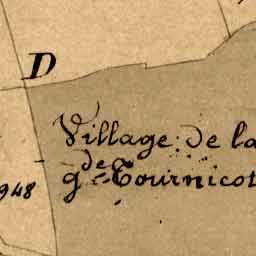 D
Village de la
gde Tournicot
948